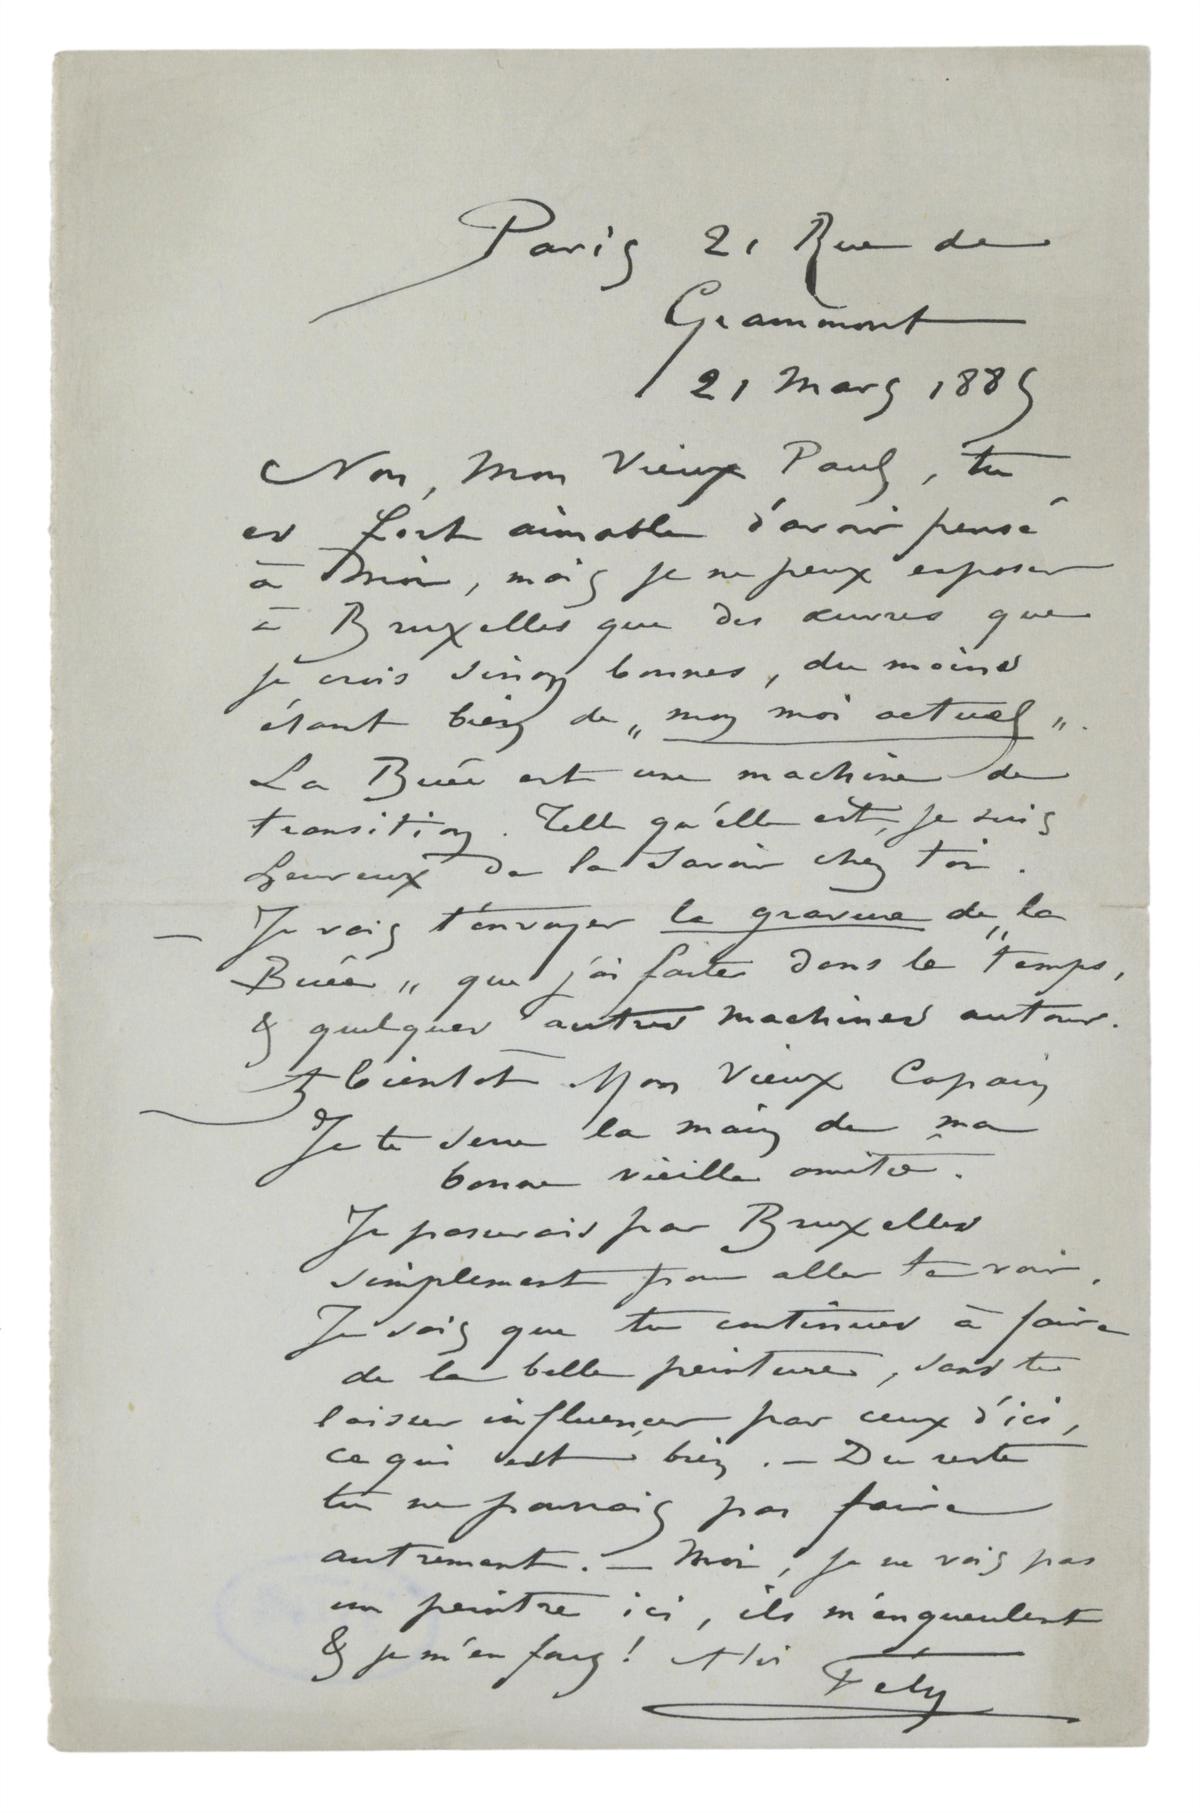 Paris 21 Rue de
Grammont
21 Mars 1885
Non, Mon Vieux Paul, tu
es fort aimable d'avoir pensé
à Moi, mais je ne peux exposer
à Bruxelles que des œuvres que
je crois sinon bonnes, du moins
étant bien de „ mon moi actuel „.
La Buée est une machine de
transition. Telle qu'elle est, je suis
heureux de la savoir chez toi.
— Je vais t'envoyer la gravure de „ la
Buée „ que j'ai faite dans le temps,
& quelques autres machines autour.
A bientot Mon Vieux Copain
Je te serre la main de ma
bonne vieille amitié.
Je passerais par Bruxelles
simplement pour aller te voir.
Je sais que tu continues à faire
de la belle peinture, sans te
laisser influencer par ceux d'ici,
ce qui est bien. — Du reste
tu ne pourrais pas faire
autrement. — Moi, je ne vois pas
un peintre ici, ils m'engueulent
& je m'en fous! A toi
Fély